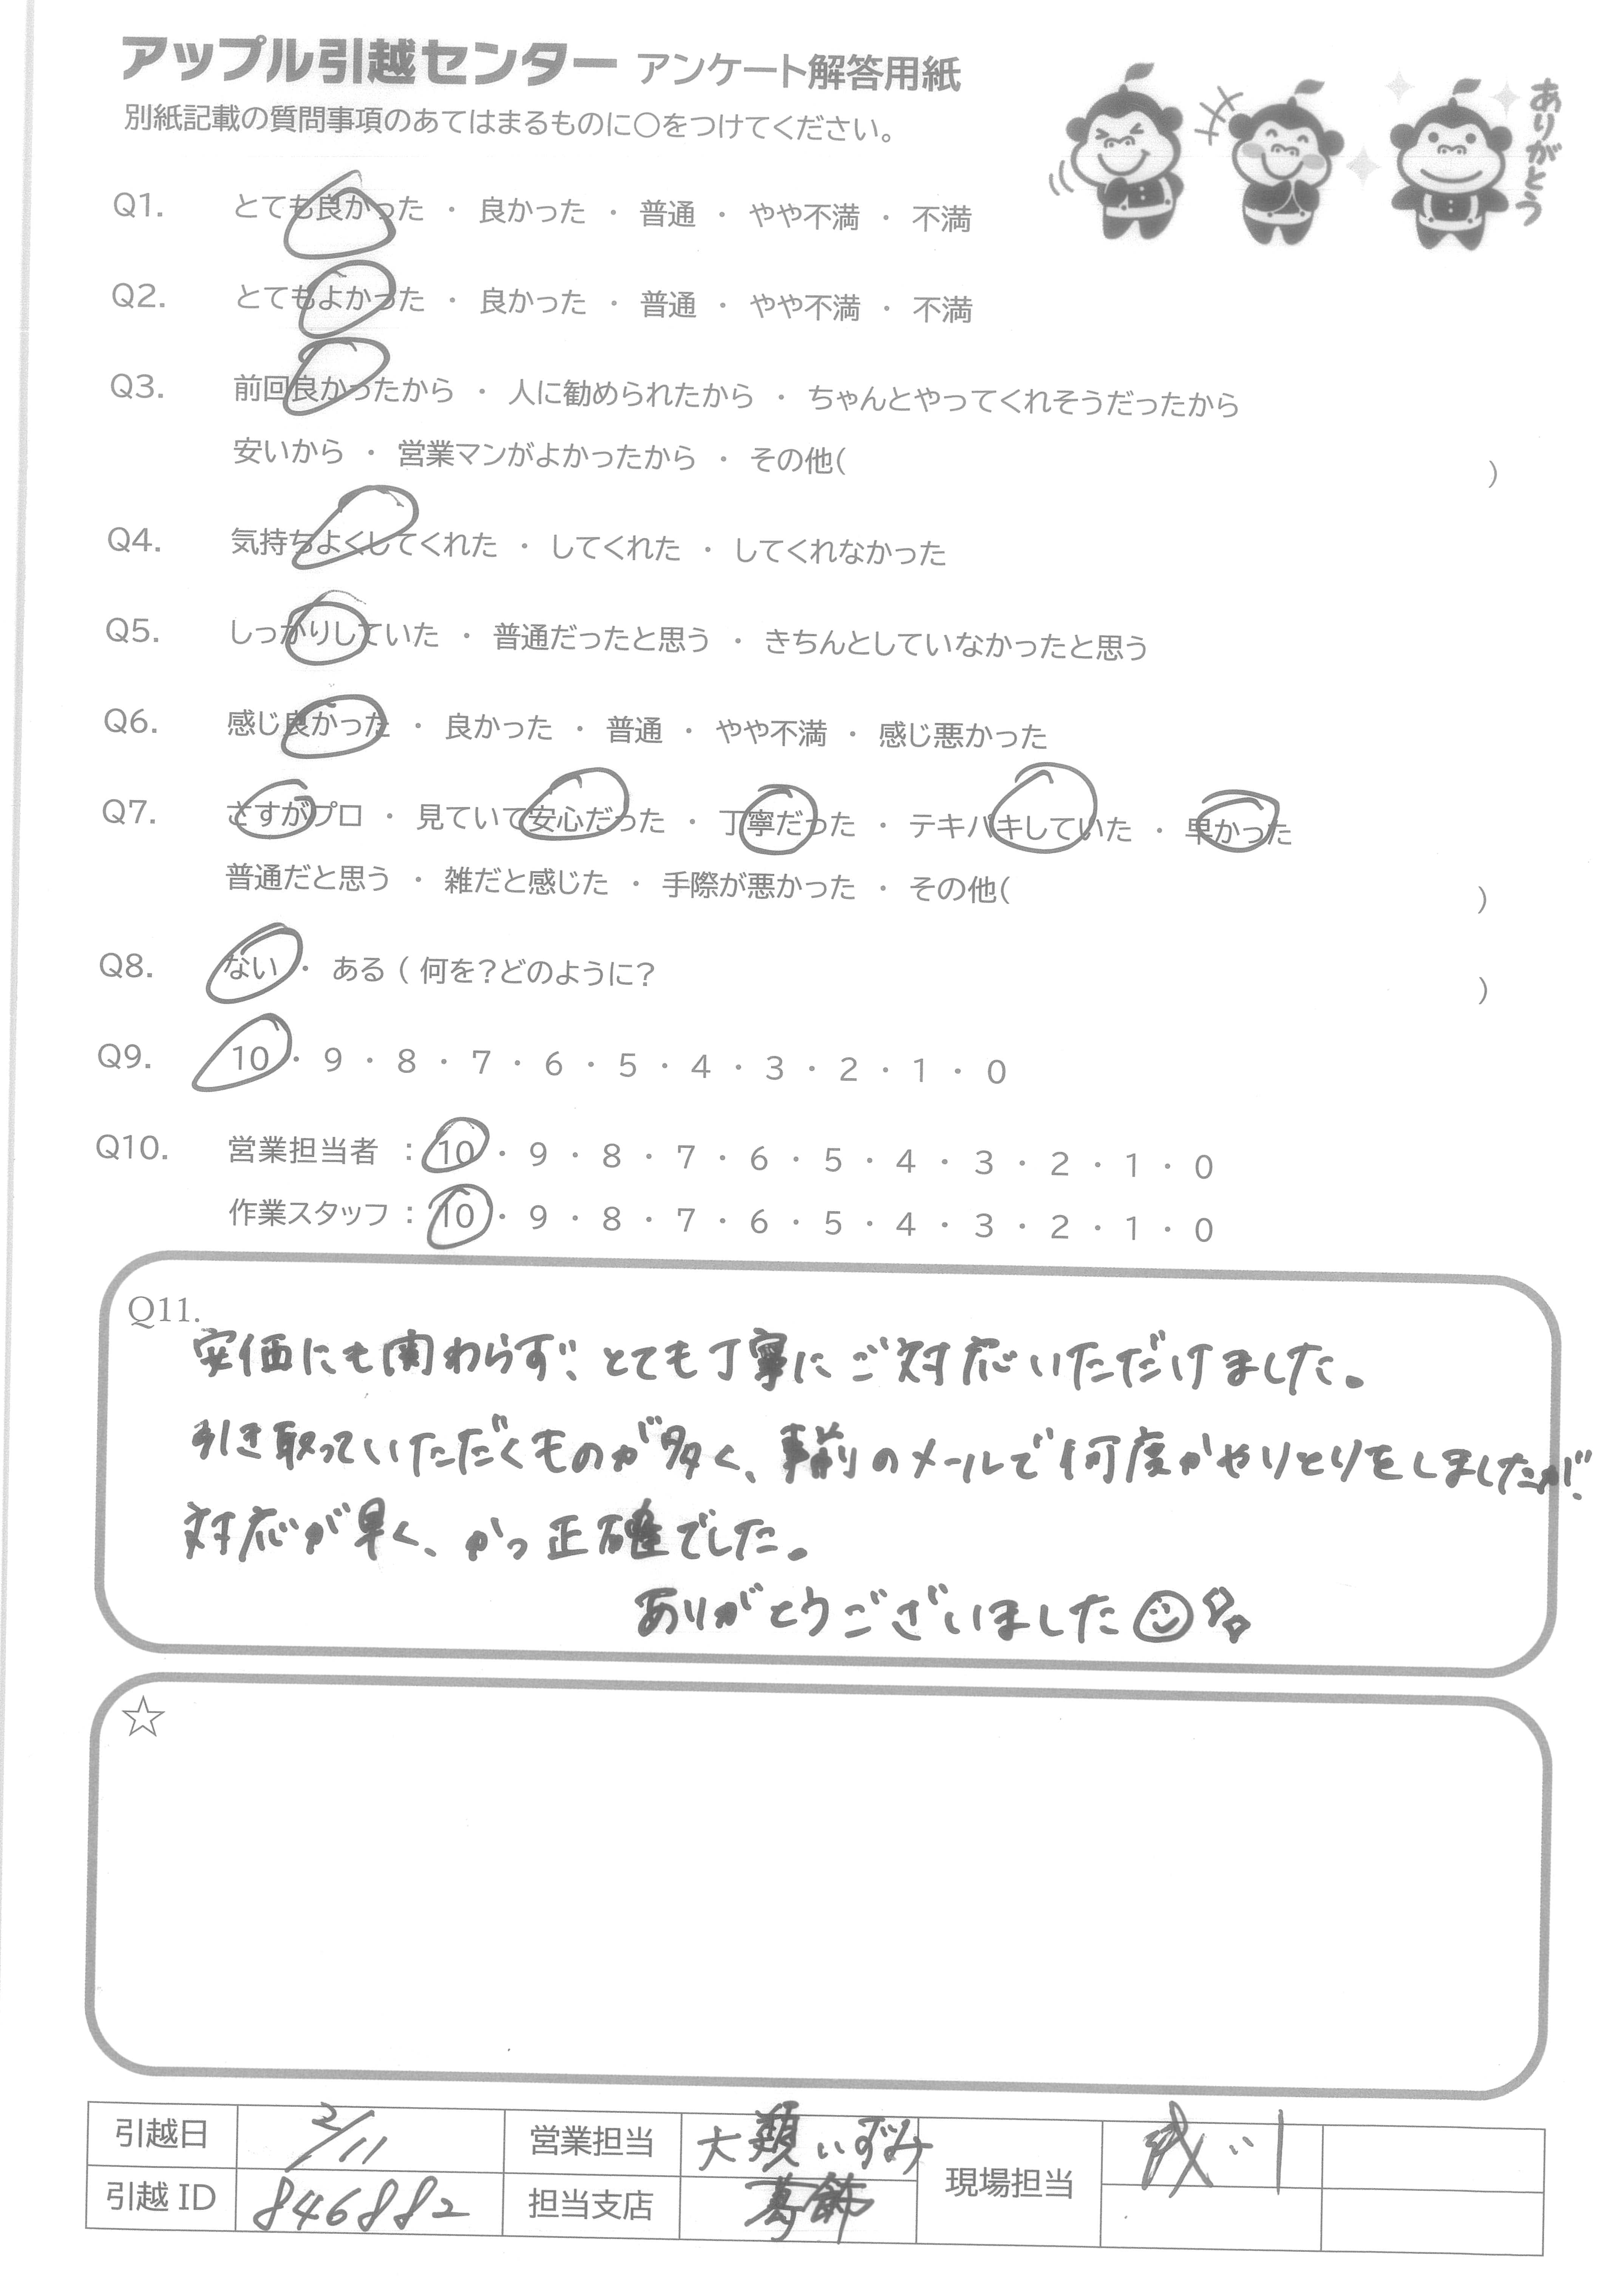 アップル引越センター アンケート解答用紙
別紙記載の質問事項のあてはまるものに○をつけてください。
ありがとう
Q1. とても良かった ・ 良かった ・ 普通 ・ やや不満 ・ 不満
Q2. とてもよかった ・ 良かった ・ 普通 ・ やや不満 ・ 不満
Q3. 前回良かったから ・ 人に勧められたから ・ ちゃんとやってくれそうだったから
安いから ・ 営業マンがよかったから ・ その他( )
Q4. 気持ちよくしてくれた ・ してくれた ・ してくれなかった
Q5. しっかりしていた ・ 普通だったと思う ・ きちんとしていなかったと思う
Q6. 感じ良かった ・ 良かった ・ 普通 ・ やや不満 ・ 感じ悪かった
Q7. さすがプロ ・ 見ていて安心だった ・ 丁寧だった ・ テキパキしていた ・ 早かった
普通だと思う ・ 雑だと感じた ・ 手際が悪かった ・ その他( )
Q8. ない ・ ある ( 何を?どのように? )
Q9. 10 ・ 9 ・ 8 ・ 7 ・ 6 ・ 5 ・ 4 ・ 3 ・ 2 ・ 1 ・ 0
Q10. 営業担当者 : 10 ・ 9 ・ 8 ・ 7 ・ 6 ・ 5 ・ 4 ・ 3 ・ 2 ・ 1 ・ 0
作業スタッフ : 10 ・ 9 ・ 8 ・ 7 ・ 6 ・ 5 ・ 4 ・ 3 ・ 2 ・ 1 ・ 0
Q11.
安価にも関わらず、とても丁寧にご対応いただけました。
引き取っていただくものが多く、事前のメールで何度かやりとりをしましたが、
対応が早く、かつ正確でした。
ありがとうございました
☆
引越日 2/11 営業担当 大類いずみ 現場担当
引越 ID 846882 担当支店 葛飾